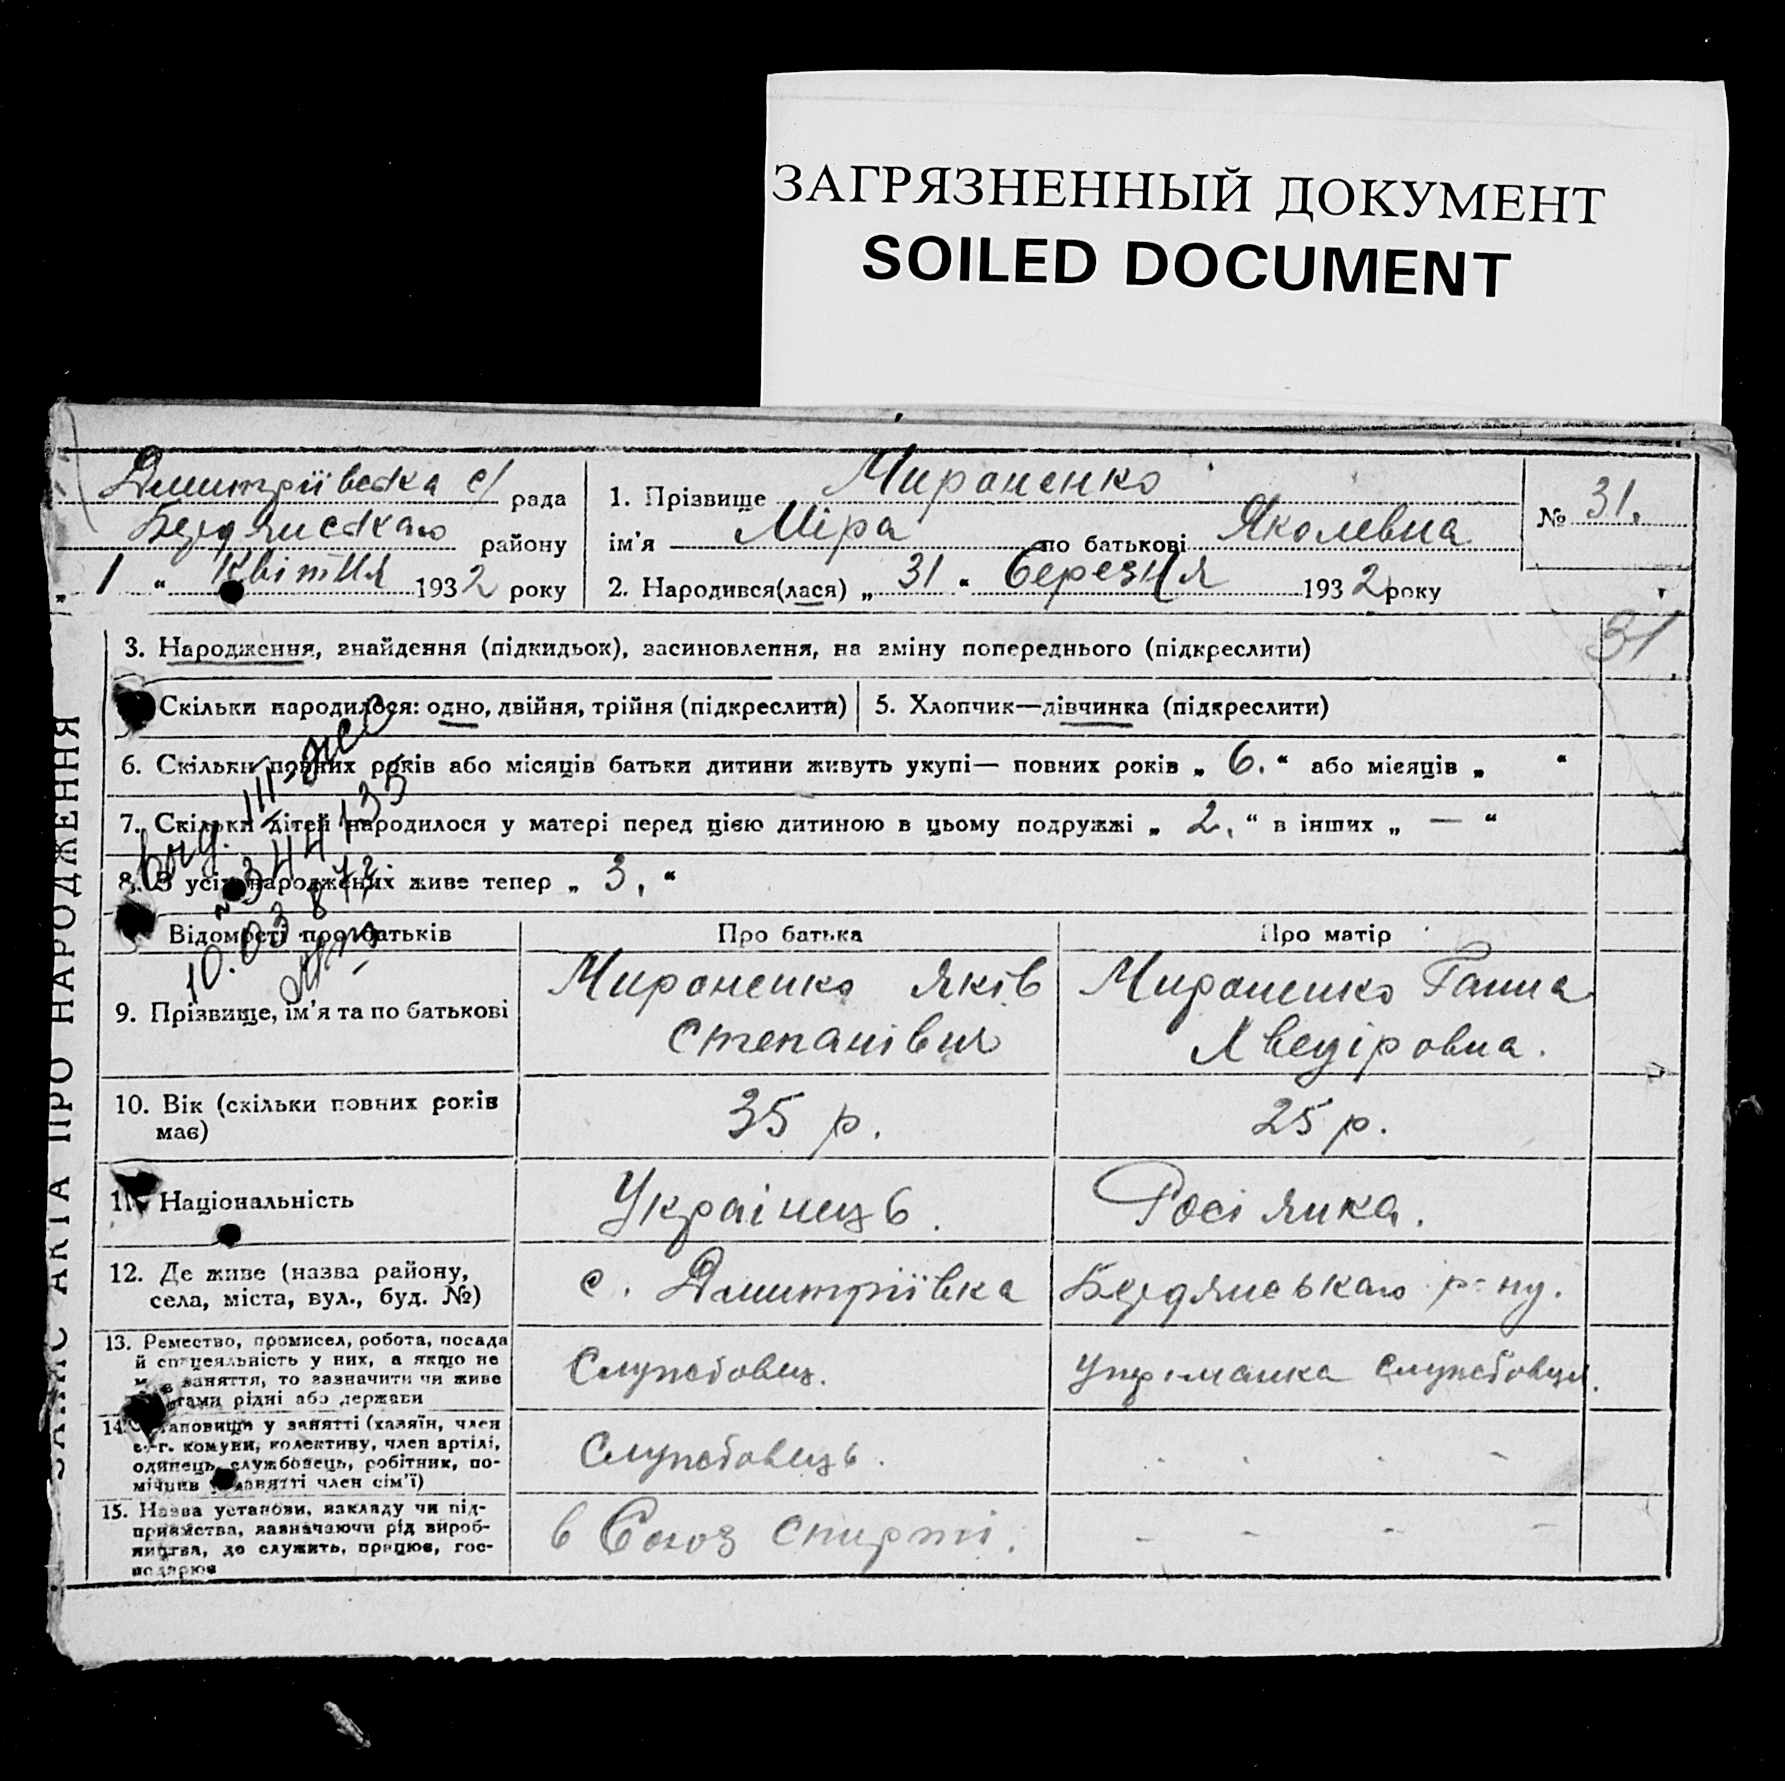 ЗАГРЯЗНЕННЫЙ ДОКУМЕНТ
SOILED DOCUMENT
Дмитріївська с/ рада
Бердянського району
„ 1 “ Квітня 1932 року
1. Прізвище Мироненко
ім'я Міра по батькові Яколевна
2. Народився(лася) „ 31 “ березня 1932 року
№ 31.
31
ЗАПИС АКТА ПРО НАРОДЖЕННЯ
3. Народження, знайдення (підкидьок), засиновлення, на зміну попереднього (підкреслити)
Скільки народилося: одно, двійня, трійня (підкреслити)
5. Хлопчик—дівчинка (підкреслити)
6. Скільки повних років або місяців батьки дитини живуть укупі— повних років „ 6. “ або місяців „ “
7. Скільки дітей народилося у матері перед цією дитиною в цьому подружжі „ 2. “ в інших „ — “
8. З усіх народжених живе тепер „ 3. “
344135
10.03
Відомості про батьків
Про батька
Про матір
9. Прізвище, ім'я та по батькові
Мироненко Яків
Степанівич
Мироненко Ганна
10. Вік (скільки повних років
має)
35 р.
25 р.
11. Національність
Українець.
Росіянка.
12. Де живе (назва району,
села, міста, вул., буд. №)
с. Дмитріївка
Бердянського р-ну.
13. Ремество, промисел, робота, посада
й спецеяльність у них, а якщо не
має заняття, то зазначити чи живе
рідні або держави
Службовец.
Утріманка службовця.
14. Становище у занятті (хазяїн, член
с.-г. комуни, колективу, член артілі,
одинець, службовець, робітник, по-
мічник у занятті член сім'ї)
Службовець.
15. Назва установи, закладу чи під-
приємства, зазначаючи рід вироб-
ництва, де служить, працює, гос-
подарює
в Союз спирті.